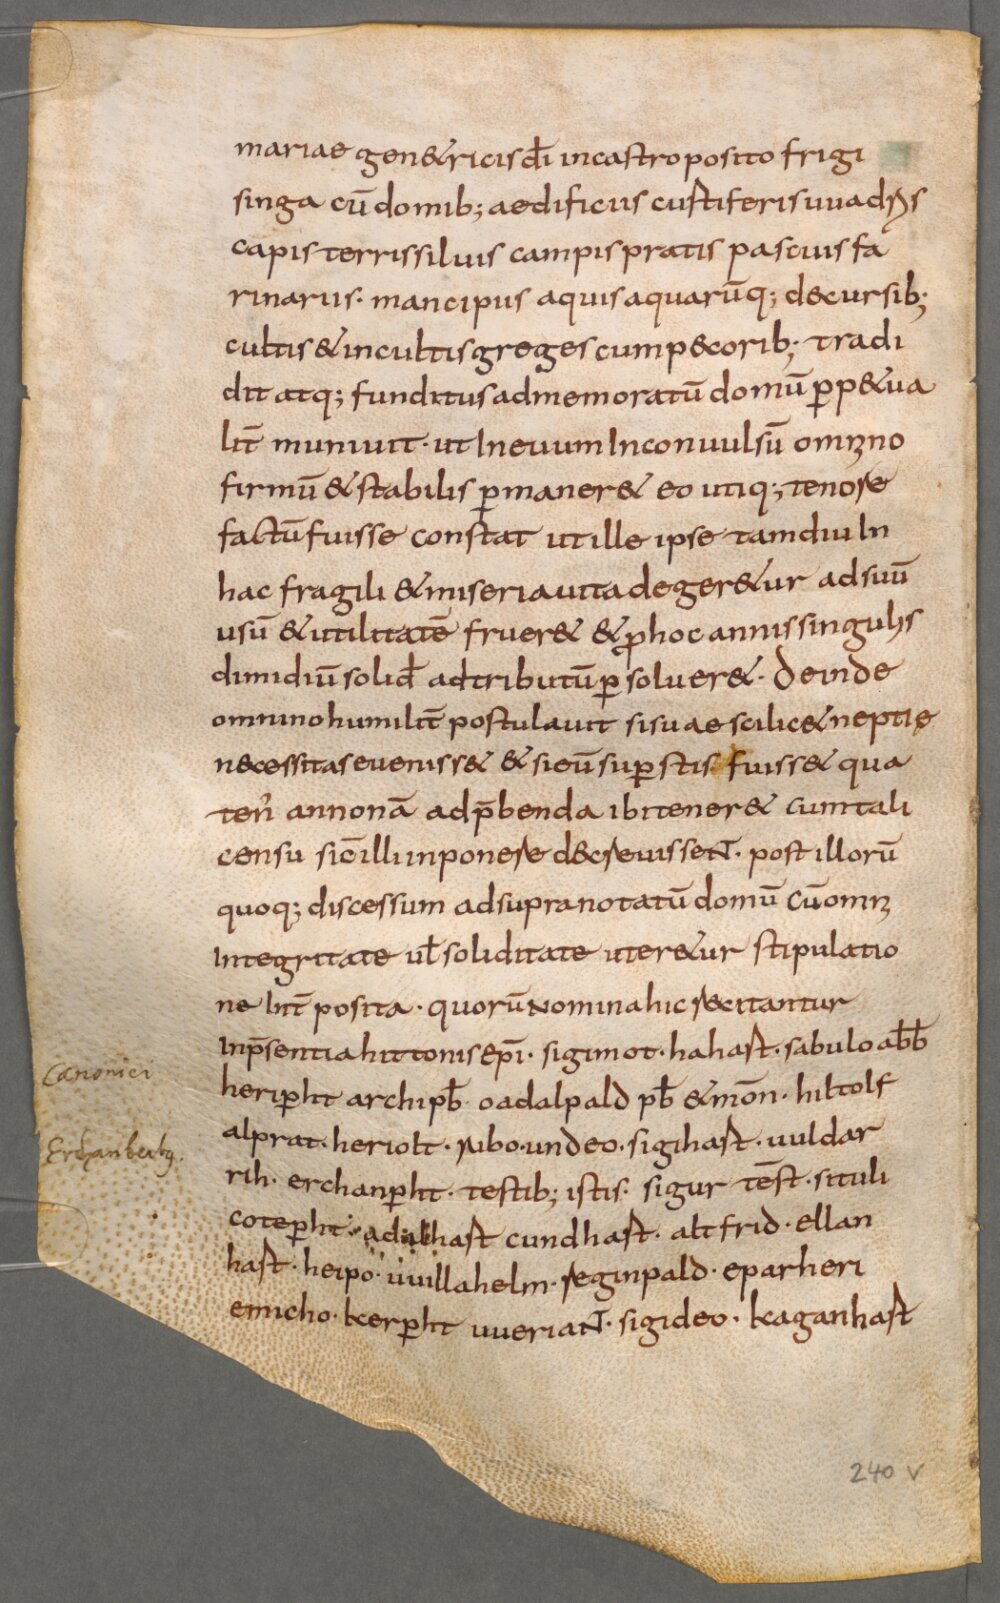 mariae gen&ricis dī in castro posito frigi
singa cū domib; aedificiis custiferis uuadriis
capis terris siluis campis pratis pascuis fa
rinariis · mancipiis aquis aquarūq; decursib;
cultis & incultis greges cum pecorib; tradi
dit atq; funditus ad memoratū domū ꝑp&ua
lit̄ muniuit · ut in euum inconuulsū omnino
firmū & stabilis ꝑmaner& eo utiq; tenore
factū fuisse constat ut ille ipse tamdiu in
hac fragili & miseria uita deger&ur ad suū
usū & utilitatē fruer& & ꝓ hoc annis singulis
dimidiū solid̄ ad tributū ꝑsoluer& · Deinde
omnino humilit̄ postulauit si suae scilic& neptie
necessitas eueniss& & si eū suꝑstis fuiss& qua
ten̄ annonā ad p̄benda ibi tener& cum tali
censu sic̄ illi inponere decreuissent · post illorū
quoq; discessum ad supranotatū domū cū omni
integritate ul̄ soliditate uter&ur stipulatio
ne hit̄ posita · quorū nomina hic recitantur
In p̄sentia hittonis ep̄i · sigimot · hahast · sabulo abb̄
heriꝑht archipb̄ oadalpald pb̄ & mōn · hiltolf
alprat · heriolt · ribo · undeo · sigihast · uuldar
rih · erchanꝑht · testib; istis · sigur tēst · situli
coteꝑht · adalhast cundhast · altfrid · ellan
hast · heipo · uuillahelm · reginpald · eparheri
emicho · kerꝑht uueriant · sigideo · kaganhast
Canonici
Erchanbertg.
240 v